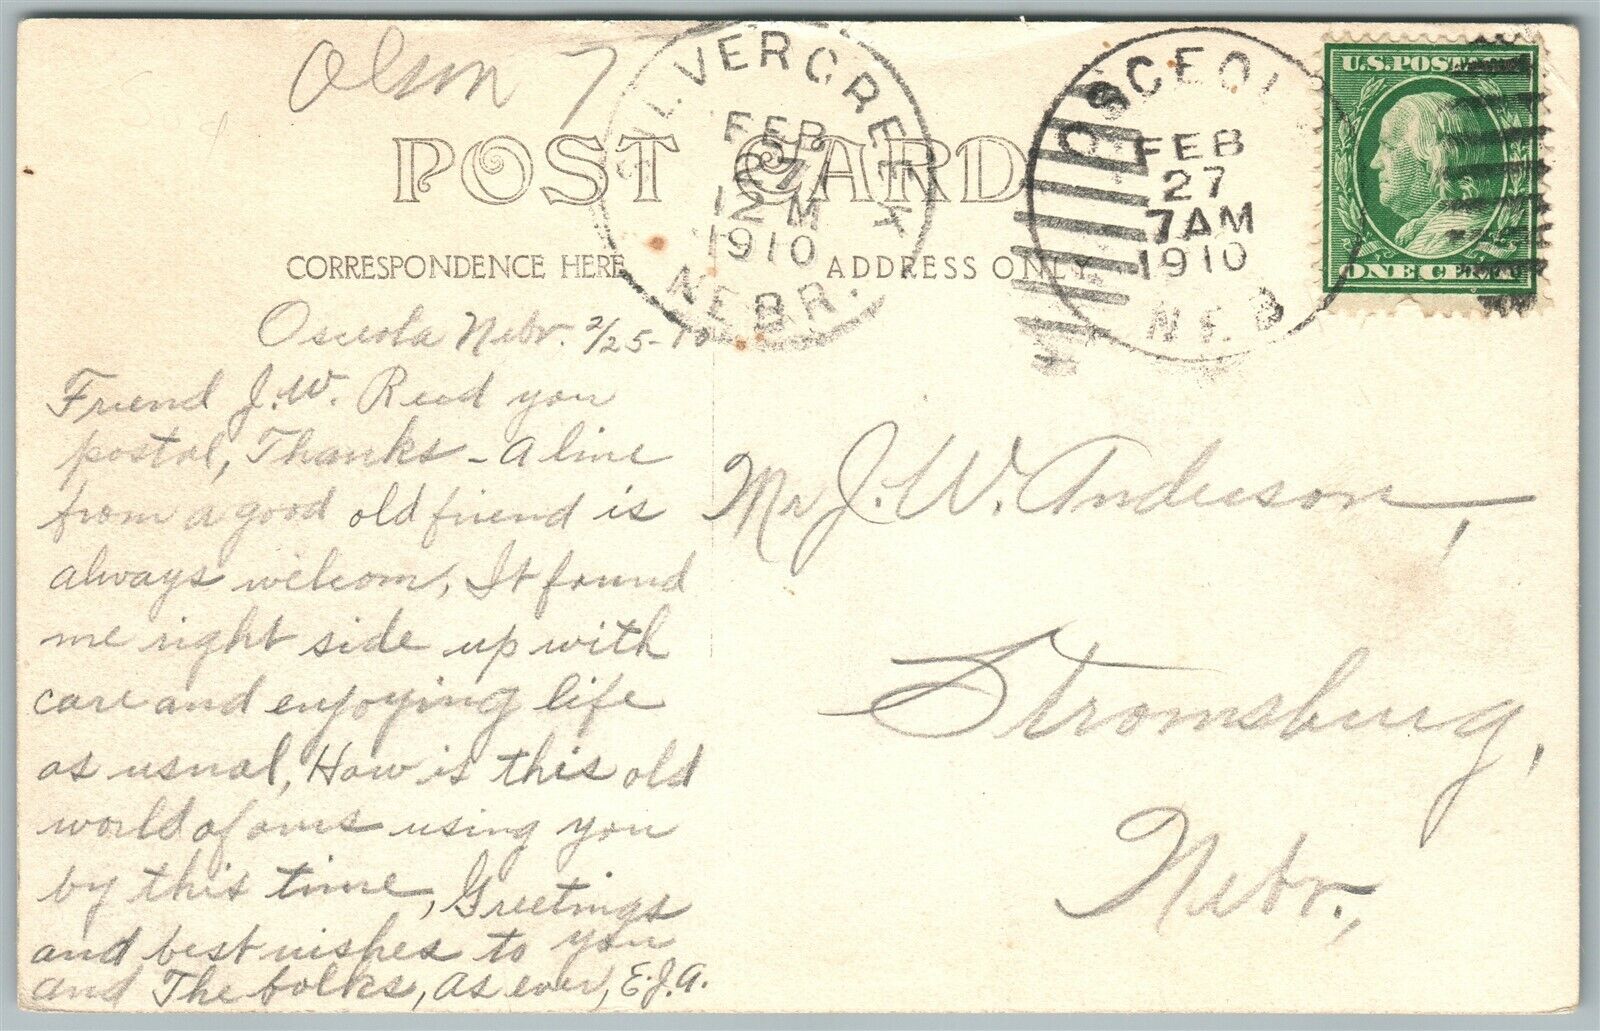 Olson 7
SILVERCREEK
FEB
27
12 M
1910
NEBR.
OSCEOL
FEB
27
7 AM
1910
NEB
U.S. POST
ONE CE
POST CARD
CORRESPONDENCE HERE
ADDRESS ONLY
Osceola Nebr. 2/25-10
Friend J.W. Recd you
postal, Thanks - A line
from a good old friend is
always welcom, It found
me right side up with
care and enjoying life
as usual, How is this old
world of ours using you
by this time, Greetings
and best wishes to you
and The folks, as ever, E.J.A.
Mr J. W. Anderson,
Stromsburg,
Nebr.,